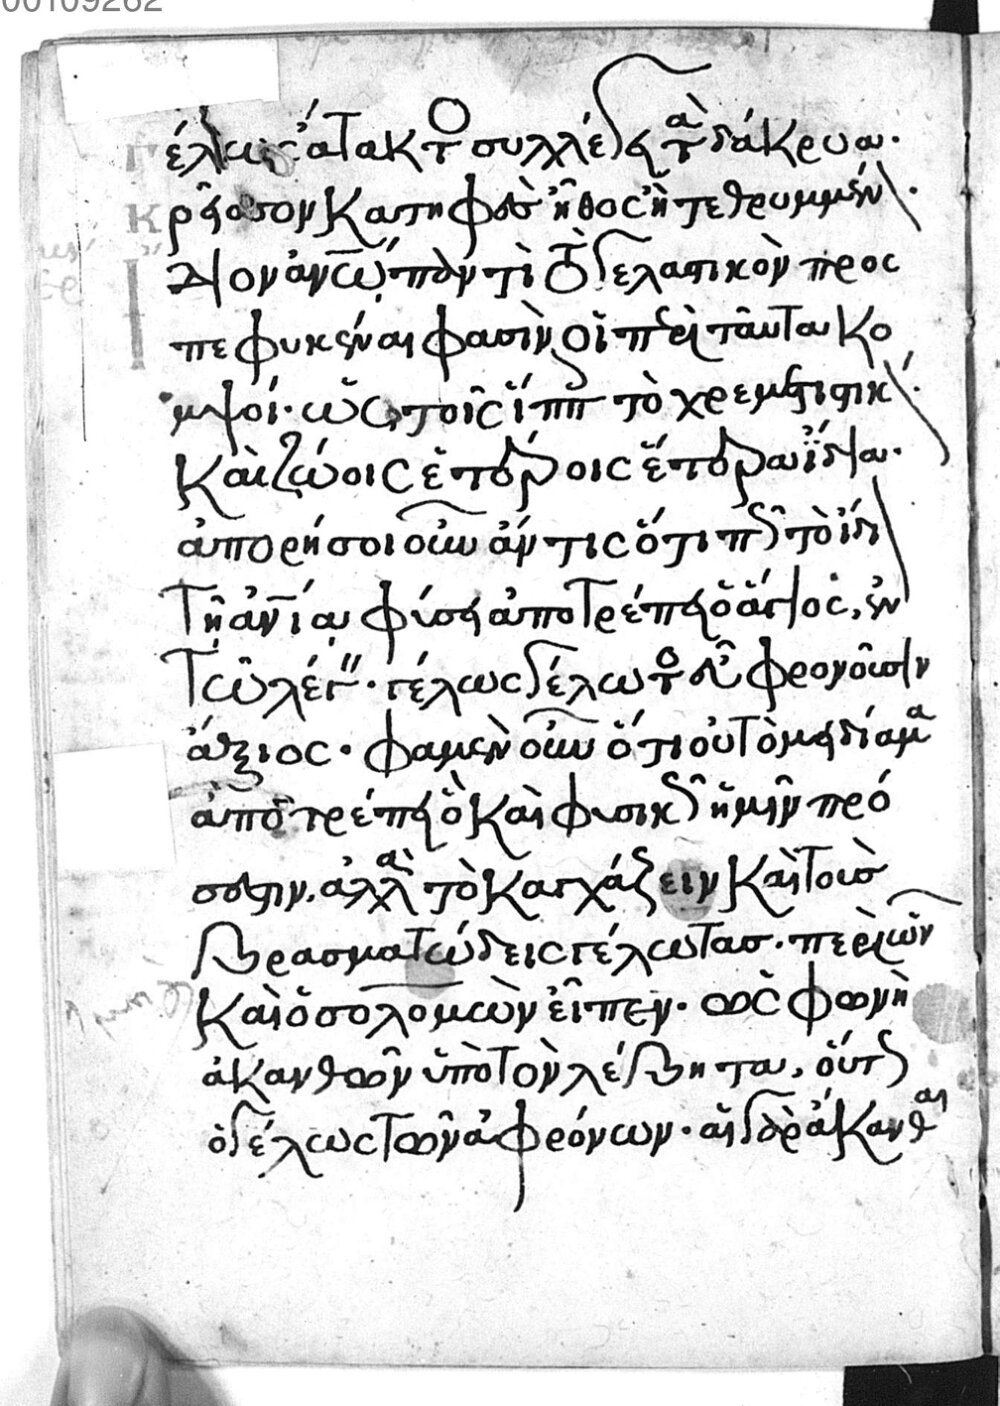 00109262
γέλως ἄτακτος συλλέγει τὰ δάκρυα.
κρεῖσσον κατηφὲς ἦθος ἢ τεθρυμμένον.
Ἴδιον ἀνθρώπων τὸ γελαστικὸν προσ
πεφυκέναι φασὶν οἱ περὶ ταῦτα κο
μψοί. ὡς τοῖς ἵπποις τὸ χρεμετιστικόν.
καὶ ζώοις ἑτέροις ἕτερα ἴδια.
ἀπορήσοι οὖν ἄν τις ὅτι περ τὸ ἴδιον
τῆ ἀνθρωπίνη φύσει ἀποτρέπει ὁ ἅγιος, ἐν
τῶ λέγειν. γέλως γέλωτος εὖ φρονοῦσιν
ἄξιος. φαμὲν οὖν ὅτι οὐ τὸ μειδίαμα
ἀποτρέπει ὃ καὶ φυσικῶς ἡμῖν πρό
σεστιν. ἀλλὰ τὸ καγχάζειν καὶ τοὺς
βρασματώδεις γέλωτας. περὶ ὧν
καὶ ὁ σολομὼν εἶπεν. ὡς φωνὴ
ἀκανθῶν ὑπὸ τὸν λέβητα, οὕτως
ὁ γέλως τῶν ἀφρόνων. αἱ γὰρ ἄκανθαι